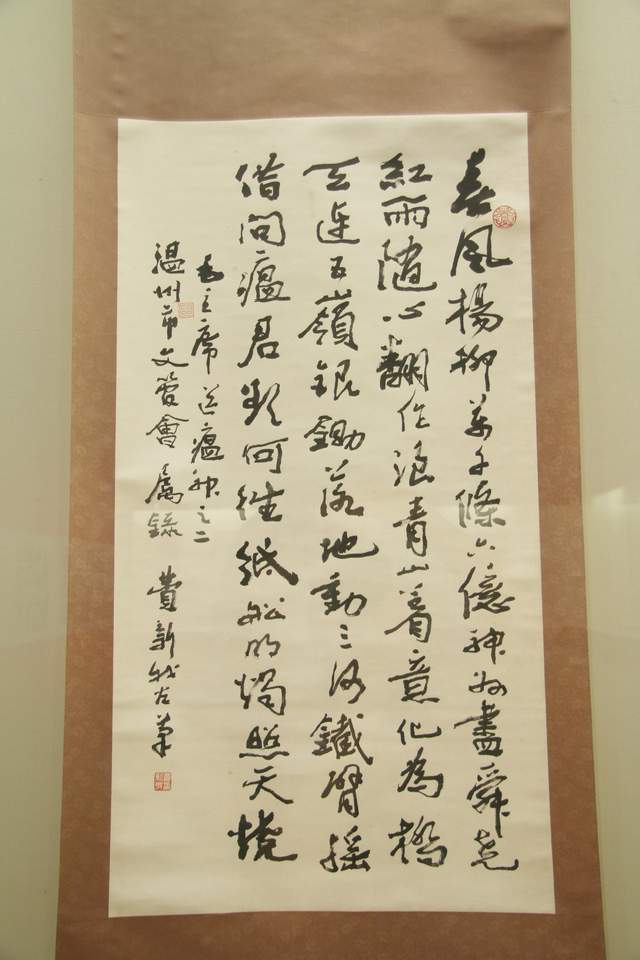 春風楊柳萬千條六億神州盡舜堯
紅雨隨心翻作浪青山着意化為橋
天連五嶺銀鋤落地動三河鐵臂搖
借問瘟君欲何往紙船明燭照天燒
毛主席送瘟神之二
温州市文管會属錄 費新我左筆